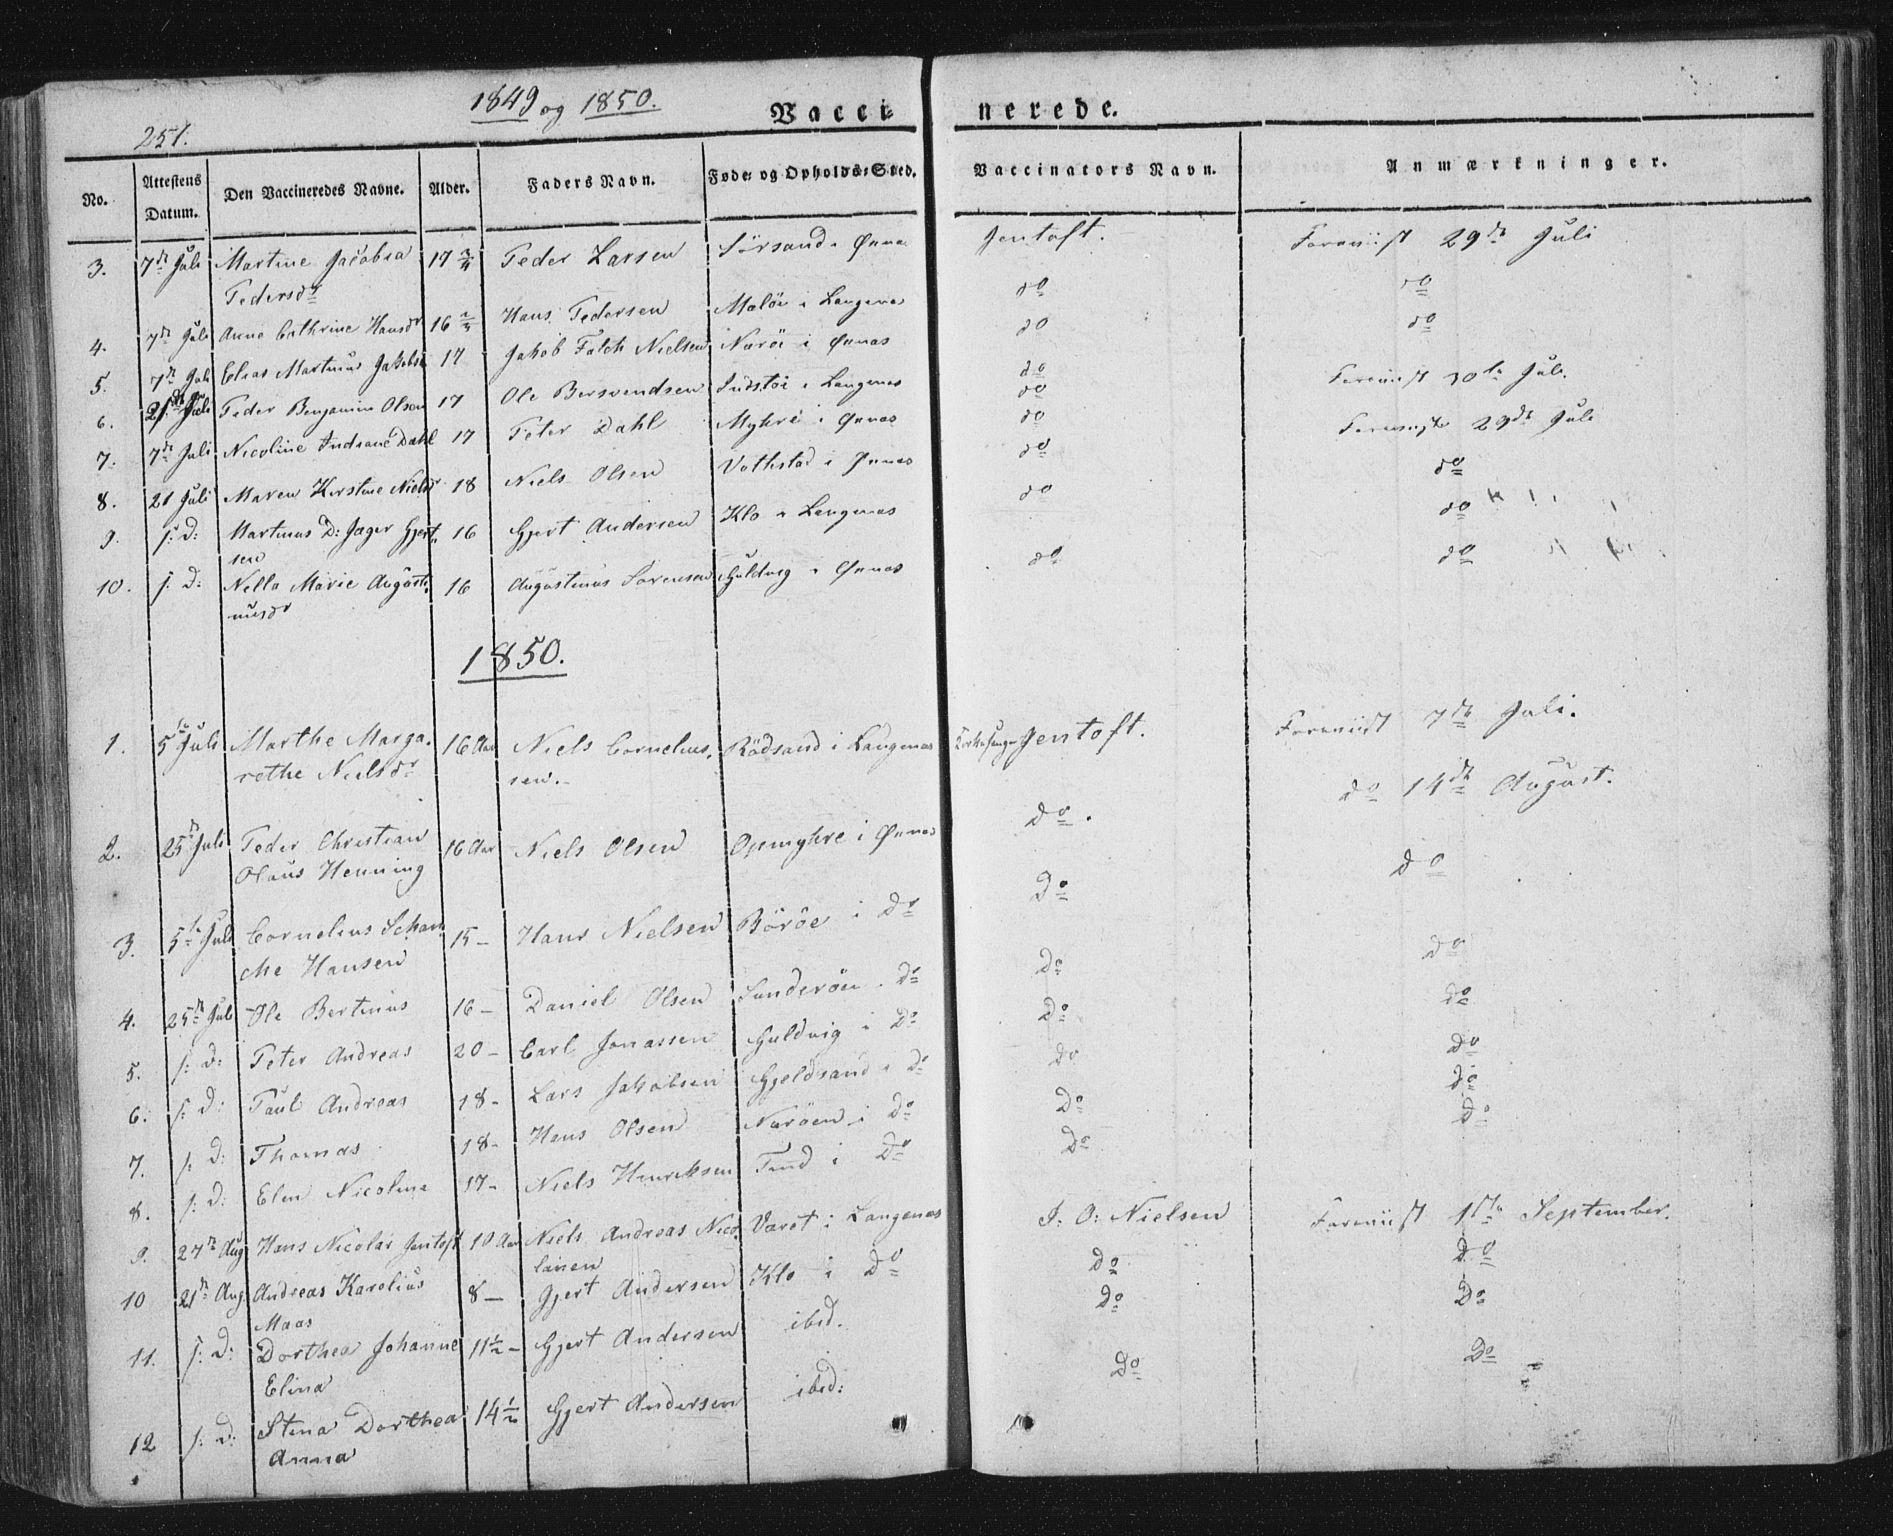 251.
1849 og 1850.
Vacci- nerede.
No. Attestens Datum. Den Vaccineredes Navne. Alder. Faders Navn. Føde- og Opholds-Sted. Vaccinators Navn. Anmærkninger.
3. 7de Juli Martine Jacobea 17 3/4 Peder Larsen Sörsand i Øxnes Jentoft. Foreviist 29de Juli
Pedersdr
4. 7de Juli Anne Cathrine Hansdr 16 Hans Pedersen Maløe i Langenes do do
5. 7de Juli Elias Martinus Jakobse 17 Jakob Falch Nielsen Narøe i Øxnes do do
6. 21de Juli Peder Benjamin Olsen 17 Ole Bersvendsen i Langenes do Foreviist 30te Juli.
7. 7de Juli Nicoline Andreane Dahl 17 Peter Dahl Myhre i Øxnes do Foreviist 29de Juli
8. 21 Juli Maren Kirstine Nielsdr 18 Niels Olsen Vothstad i Øxnes do do
9. s: D: Martinus D: Jæger Gjert- 16 Gjert Andersen Klo i Langenes do do
sen
10. s: D: Nella Marie Augusti- 16 Augustinus Sørensen Guldvig i Øxnes do do
nusdr
1850.
1. 5te Juli Marthe Marga- 16 Aar Niels Cornelius- Rödsand i Langenes Kirkesanger Jentoft. Foreviist 7de Juli.
rethe Nielsdr sen.
2. 25de Juli Peder Christian 16 Aar Niels Olsen Opmyhre i Øxnes do. do 14de August.
Olaus Henning
3. 5te Juli Cornelius Schan- 15 – Hans Nielsen Böröe i Do Do do
che Hansen
4. 25de Juli Ole Bertinus 16 – Daniel Olsen Sanderöen i Do Do do
5. s: D: Peter Andreas 20 – Carl Jonassen Guldvig i Do Do do
6. s: D: Paul Andreas 18 – Lars Jakobsen Gjeldsand i Do do do
7. s: D: Thomas 18 – Hans Olsen Naröen i Do Do do
8. s: D: Elen Nicoline 17 – Niels Henriksen Tind i Do Do Do
9. 27de Aug Hans Nicolai Jentoft 10 Aar Niels Andreas Nico- Varet i Langenes J: O: Nielsen Foreviist 1ste September.
laisen
10 21de Aug. Andreas Karolius 8 – Gjert Andersen Klo i Do Do do
Maas
11. s: D: Dorthea Johanne 11 1/2 – Gjert Andersen ibid. Do Do
Elina
12 s: D: Stina Dorthea 14 1/2 Gjert Andersen ibid: Do Do
Anna